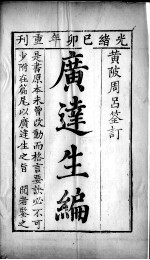 光緒己卯年重刊
黃陂周呂筌訂
廣達生編
是書原本未曾改動而格言要訣必不可
少附在篇尾以廣達生之旨　閱者鑒之